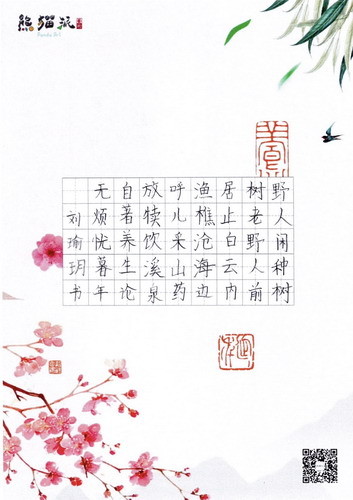 熊猫派
野人闲种树
树老野人前
居止白云内
渔樵沧海边
呼儿采山药
放犊饮溪泉
自著养生论
无烦忧暮年
刘瑜玥书